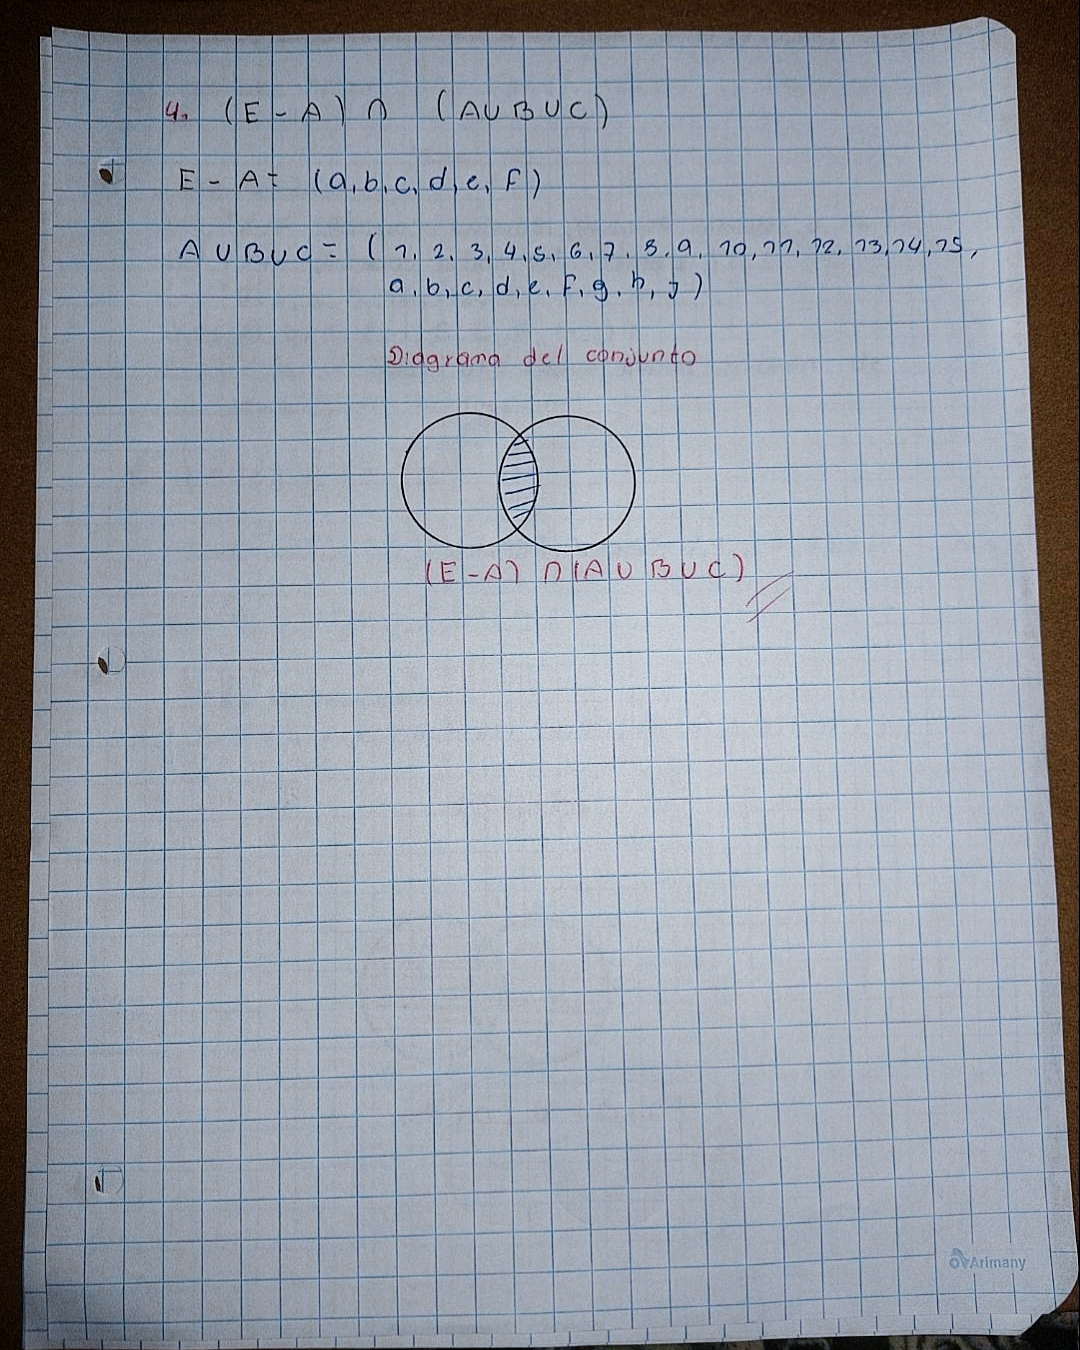 4. (E - A) ∩ (A ∪ B ∪ C)
E - A = (a, b, c, d, e, f)
A ∪ B ∪ C = (1, 2, 3, 4, 5, 6, 7, 8, 9, 10, 11, 12, 13, 14, 15,
a, b, c, d, e, f, g, h, j)
Diagrama del conjunto
(E - A) ∩ (A ∪ B ∪ C)
Arimany